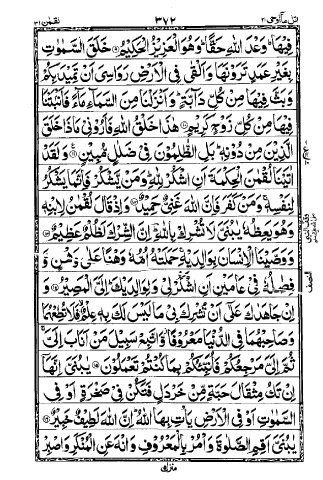 لقمٰن ٣١ ٣٧٢ اتل مآ اوحی ٢١
فِيْهَا ؕ وَعْدَ اللّٰهِ حَقًّا ؕ وَهُوَ الْعَزِيْزُ الْحَكِيْمُ ۹ خَلَقَ السَّمٰوٰتِ
بِغَيْرِ عَمَدٍ تَرَوْنَهَا وَاَلْقٰى فِى الْاَرْضِ رَوَاسِىَ اَنْ تَمِيْدَ بِكُمْ
وَبَثَّ فِيْهَا مِنْ كُلِّ دَآبَّةٍ ؕ وَاَنْزَلْنَا مِنَ السَّمَآءِ مَآءً فَاَنْۢبَتْنَا
فِيْهَا مِنْ كُلِّ زَوْجٍ كَرِيْمٍ ۱۰ هٰذَا خَلْقُ اللّٰهِ فَاَرُوْنِىْ مَاذَا خَلَقَ
الَّذِيْنَ مِنْ دُوْنِهٖ ؕ بَلِ الظّٰلِمُوْنَ فِىْ ضَلٰلٍ مُّبِيْنٍ ۱۱ وَلَقَدْ
اٰتَيْنَا لُقْمٰنَ الْحِكْمَةَ اَنِ اشْكُرْ لِلّٰهِ ؕ وَمَنْ يَّشْكُرْ فَاِنَّمَا يَشْكُرُ
لِنَفْسِهٖ ۚ وَمَنْ كَفَرَ فَاِنَّ اللّٰهَ غَنِىٌّ حَمِيْدٌ ۱۲ وَاِذْ قَالَ لُقْمٰنُ لِابْنِهٖ
وَهُوَ يَعِظُهٗ يٰبُنَىَّ لَا تُشْرِكْ بِاللّٰهِ ؕ اِنَّ الشِّرْكَ لَظُلْمٌ عَظِيْمٌ ۱۳
وَوَصَّيْنَا الْاِنْسَانَ بِوَالِدَيْهِ ۚ حَمَلَتْهُ اُمُّهٗ وَهْنًا عَلٰى وَهْنٍ وَّ
فِصٰلُهٗ فِىْ عَامَيْنِ اَنِ اشْكُرْ لِىْ وَلِوَالِدَيْكَ ؕ اِلَىَّ الْمَصِيْرُ ۱۴ وَ
اِنْ جَاهَدٰكَ عَلٰٓى اَنْ تُشْرِكَ بِىْ مَا لَيْسَ لَكَ بِهٖ عِلْمٌ ۙ فَلَا تُطِعْهُمَا
وَصَاحِبْهُمَا فِى الدُّنْيَا مَعْرُوْفًا ؗ وَّاتَّبِعْ سَبِيْلَ مَنْ اَنَابَ اِلَىَّ ۚ
ثُمَّ اِلَىَّ مَرْجِعُكُمْ فَاُنَبِّئُكُمْ بِمَا كُنْتُمْ تَعْمَلُوْنَ ۱۵ يٰبُنَىَّ اِنَّهَآ
اِنْ تَكُ مِثْقَالَ حَبَّةٍ مِّنْ خَرْدَلٍ فَتَكُنْ فِىْ صَخْرَةٍ اَوْ فِى
السَّمٰوٰتِ اَوْ فِى الْاَرْضِ يَاْتِ بِهَا اللّٰهُ ؕ اِنَّ اللّٰهَ لَطِيْفٌ خَبِيْرٌ ۱۶
يٰبُنَىَّ اَقِمِ الصَّلٰوةَ وَاْمُرْ بِالْمَعْرُوْفِ وَانْهَ عَنِ الْمُنْكَرِ وَاصْبِرْ
النصف